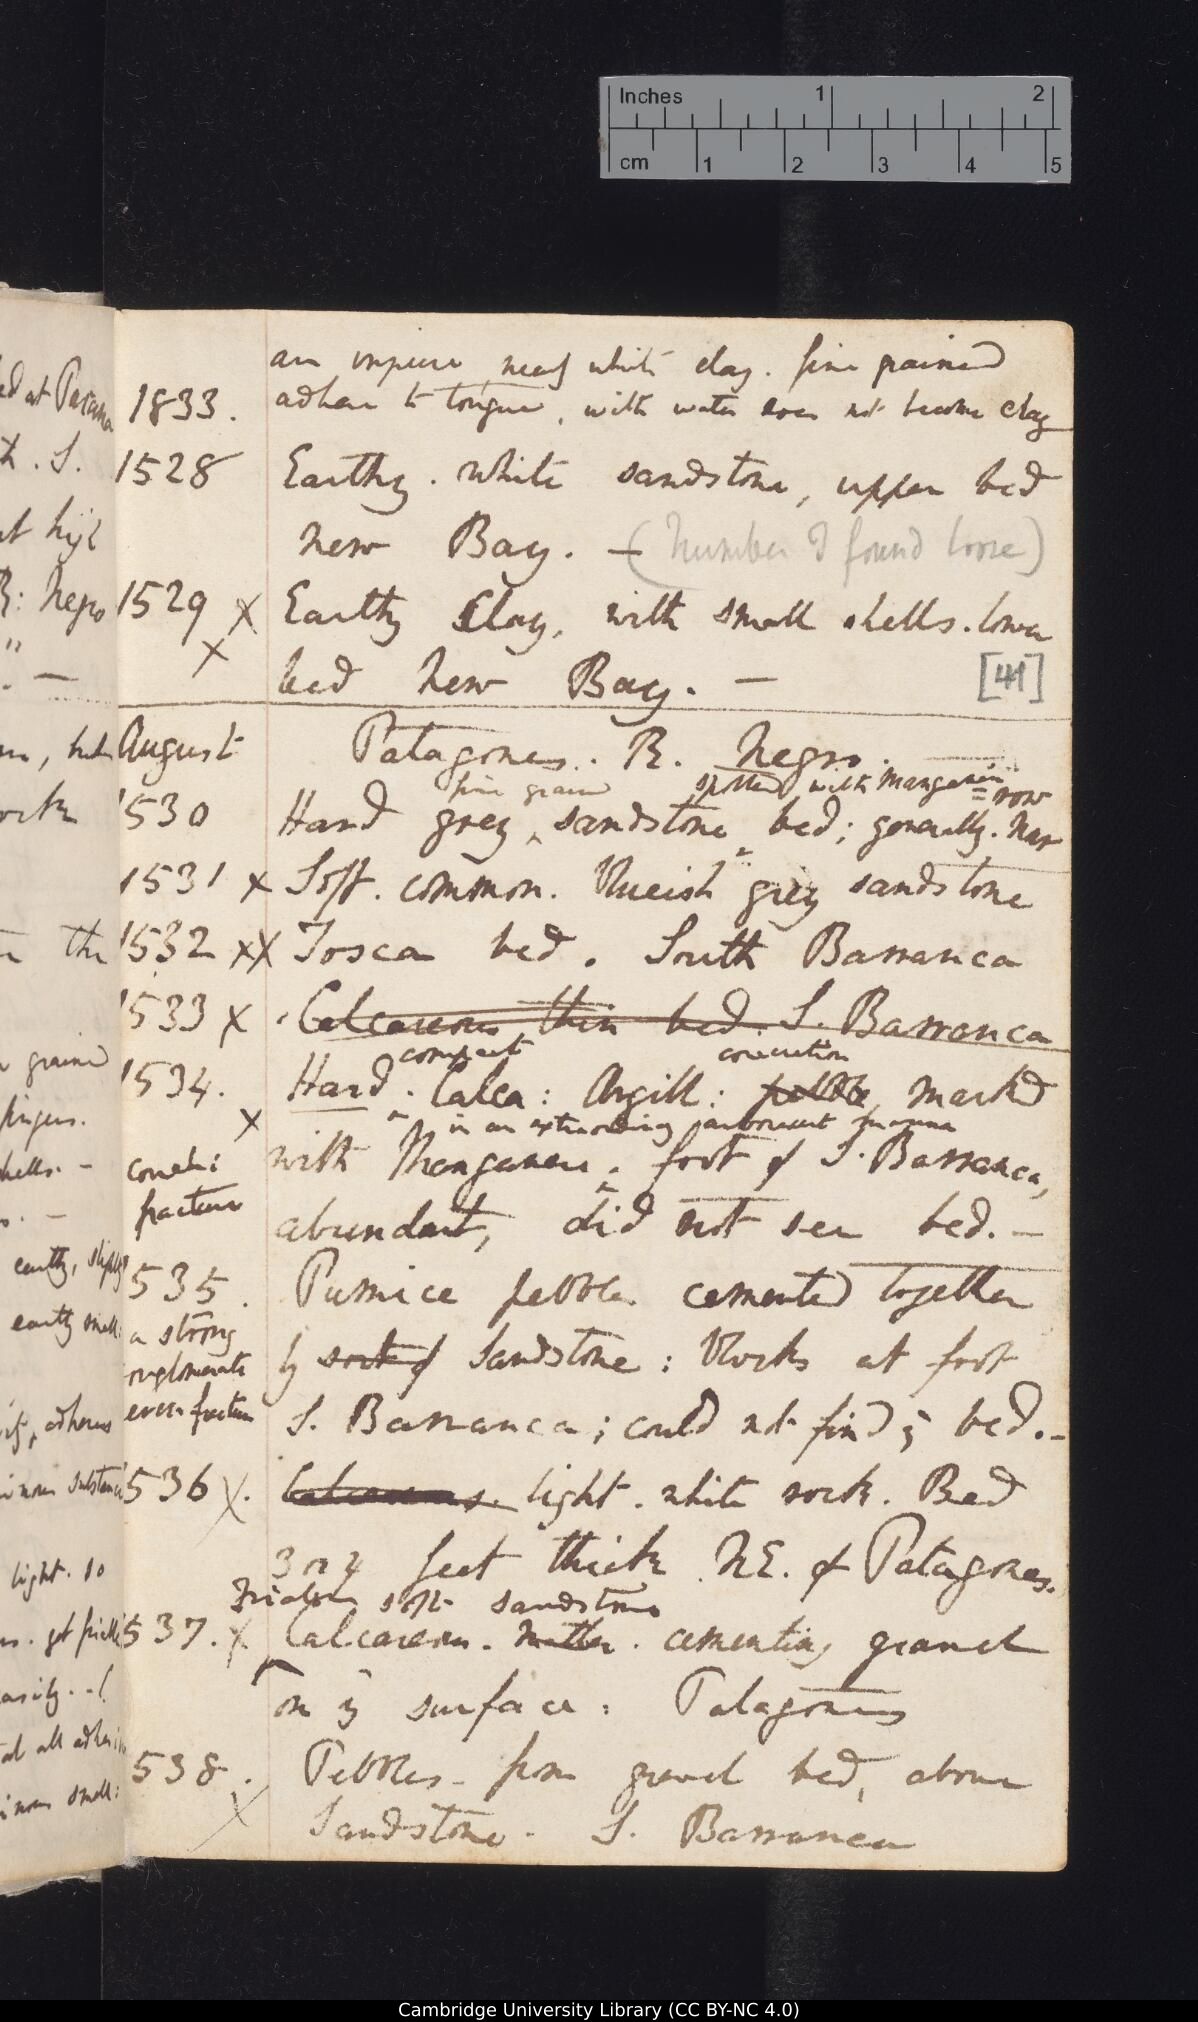 Inches 1 2
cm 1 2 3 4 5
an impure, nearly white clay. fine grained
1833. adhere to tongue, with water does not become clay
1528 Earthy. white sandstone, upper bed
New Bay. — (Number I found loose)
1529 X Earthy Clay, with small shells. lower
X bed New Bay. — [41]
August Patagones. R. Negro.
fine grained spotted with Manganese
1530 Hard grey sandstone bed; generally.
1531 X Soft. common. Blueish grey sandstone
1532 XX Tosca bed. South Barranca
1533 X Calcareous thin bed. S. Barranca
compact concretion
1534. Hard. Calca: Argill: pebble, marked
X in an extraordinary arborescent manner
with Manganese. foot of S. Barranca,
conch:
fracture
abundant, did not see bed. —
535. Pumice pebbles cemented together
a strong
conglomerate
by sort of Sandstone: blocks at foot
even fracture
S. Barranca; could not find ye bed. —
536 X. Calcareous. light. white rock. Bed
3 or 4 feet thick. NE. of Patagones.
Friable soft sandstone
537. X Calcareous. matter. cementing gravel
on ye surface: Patagones
538. Pebbles from gravel bed, above
X Sandstone. S. Barranca
Cambridge University Library (CC BY-NC 4.0)